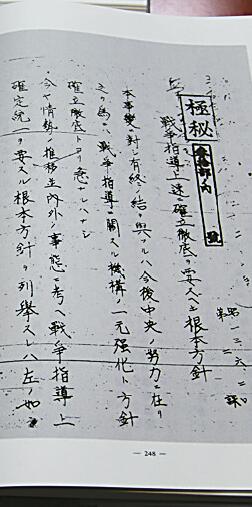 極秘
一三、六、二〇
第一課
戦争指導上速ニ確立徹底ヲ要スヘキ根本方針
本事変ニ対シ有終ノ結ヲ與フルハ今後中央ノ努力ニ在リ
之カ為ニハ戦争指導ニ関スル機構ノ一元強化ト方針
確立徹底トヲ急ナルヘシ
今ヤ情勢ノ推移並内外ノ事態ヲ考ヘ戦争指導上
確定統一ヲ要スル根本方針ヲ列挙スレハ左ノ如シ
— 248 —